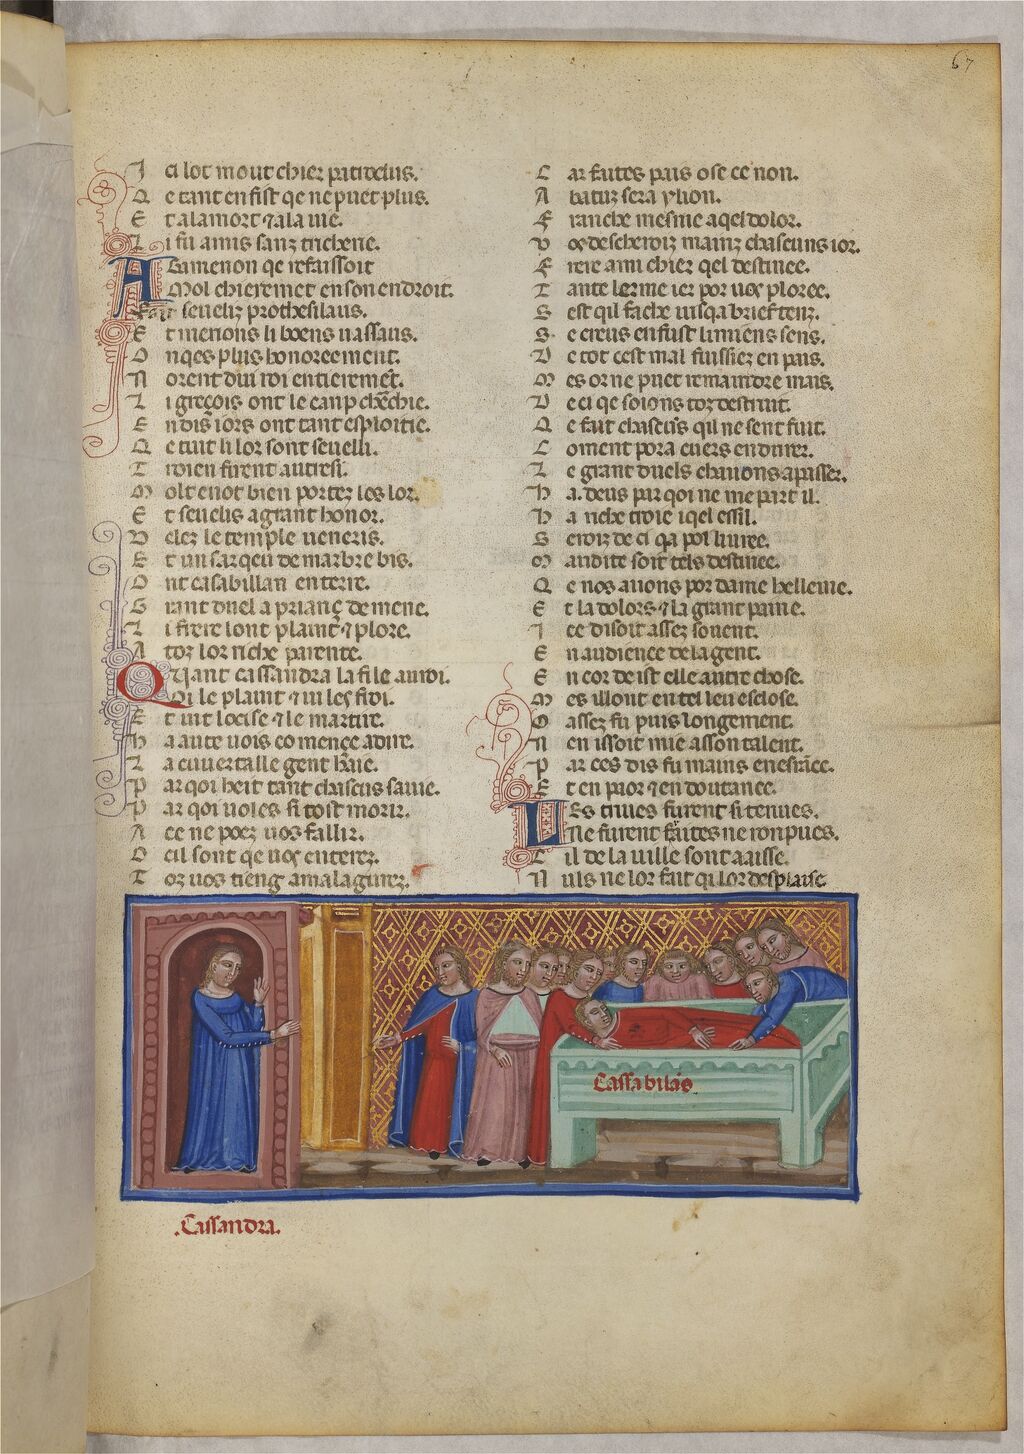 67
I ci lot mout chier patroclus.
Q e tant en fist qe ne puet plus.
E t a la mort ⁊ a la vie.
L i fu amis sanz tricherie.
Agamenon qe refaissoit
Mol chierement en son endroit.
Fait sevelir prothesilaus.
E t merions li boens vassaus.
O nqes plus honoreement.
N orent dui roi entieremēt.
L i greçois ont le canp chēchie.
E n dis iors ont tant esploitie.
Q e tuit li lor sont sevelli.
T roien firent autresi.
M olt en ot bien portez les lor.
E t sevelis a grant honor.
D elez le temple veneris.
E t un sarqeu de marbre bis.
O nt casabillan enterre.
G rant duel a prianz demene.
L i frere lont plaint ⁊ plore.
A toz lor riche parente.
Quant cassandra la file auidi.
Qi le plaint ⁊ vi les fidi.
E t vit locise ⁊ le martire.
H aaute vois comence a dire.
L a cuvertalle gent haie.
P ar qoi heit tant chascuns sa vie.
P ar qoi voles si tost morir.
A ce ne poez vos fallir.
O cil sont qe vos enterrez.
T oz vos tieng a malagurez.
C ar faites pais o se ce non.
A batuz sera ylion.
F ranche mesnie a qel dolor.
V os descheroiz mainz chascuns ior.
F rere ami chier qel destinee.
T ante lerme ier por vos ploree.
S est qil fache iusqa brief tenz.
S e creus en fust li miens sens.
D e tot cest mal fuissiez en pais.
M es or ne puet remaindre mais.
D e ci qe soions toz destruit.
Q e fait chascuns qil ne sent fuit.
C oment pora cuers endurer.
L e grant duels chauons a passer.
H a. deus par qoi ne me part il.
H a riche troie i qel essil.
S eroiz de ci qa pol livree.
M audite soit tels destinee.
Q e nos avons por dame helleine.
E t la dolors ⁊ la grant paine.
I ce disoit assez sovent.
E n audience de la gent.
E n cor deist elle autre chose.
M es il lont en tel leu esclose.
O assez fu puis longement.
N en issoit mie a son talent.
P ar ces dis fu mains en esfrāce.
E t en paor ⁊ en doutance.
Les trives furent si tenues.
Ne furent faites ne ronpues.
C il de la ville sont aaisse.
N uls ne lor fait qi lor desplaise.
Cassabilās
.Cassandra.